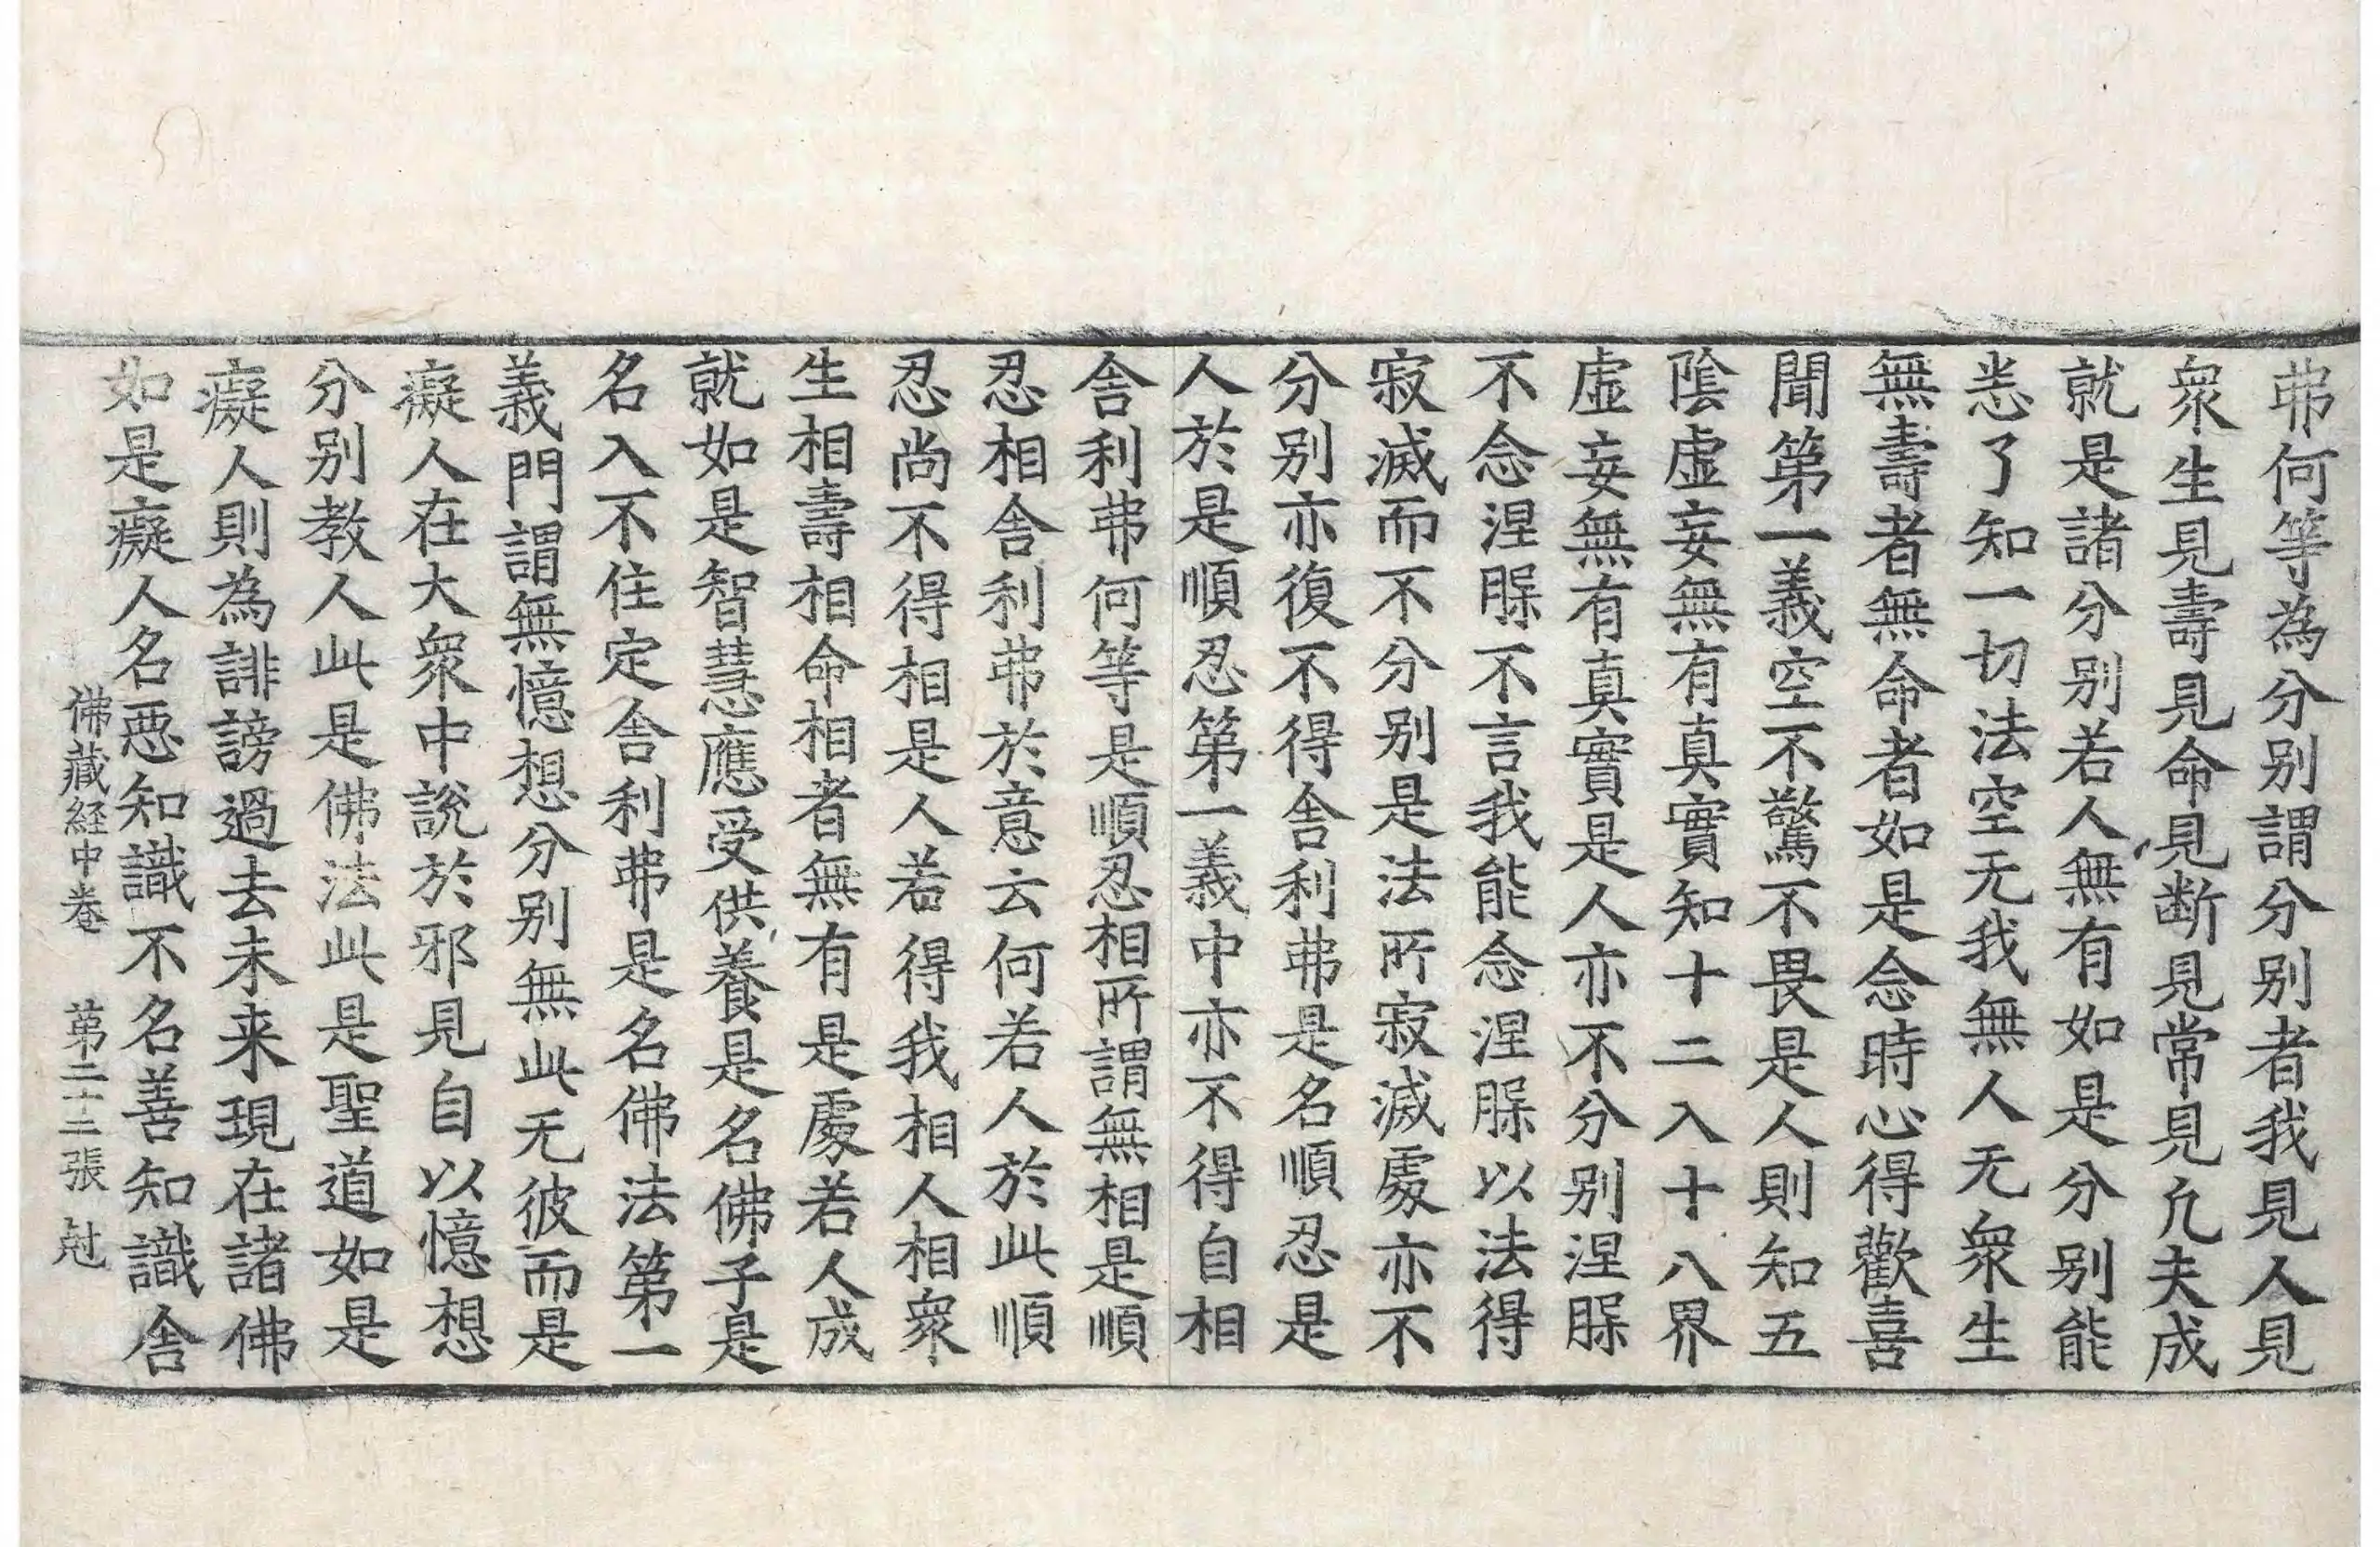 弗何等為分别謂分别者我見人見
衆生見壽見命見断見常見凢夫成
就是諸分别若人無有如是分别能
悉了知一切法空无我無人无衆生
無壽者無命者如是念時心得歡喜
聞第一義空不驚不畏是人則知五
陰虚妄無有真實知十二入十八界
虚妄無有真實是人亦不分别涅槃
不念涅槃不言我能念涅槃以法得
寂滅而不分别是法所寂滅處亦不
分别亦復不得舎利弗是名順忍是
人於是順忍第一義中亦不得自相
舎利弗何等是順忍相所謂無相是順
忍相舎利弗於意云何若人於此順
忍尚不得相是人若得我相人相衆
生相壽相命相者無有是處若人成
就如是智慧應受供養是名佛子是
名入不住定舎利弗是名佛法第一
義門謂無憶想分别無此无彼而是
癡人在大衆中說於邪見自以憶想
分别教人此是佛法此是聖道如是
癡人則為誹謗過去未来現在諸佛
如是癡人名惡知識不名善知識舎
佛藏経中巻 第二十二張 尅